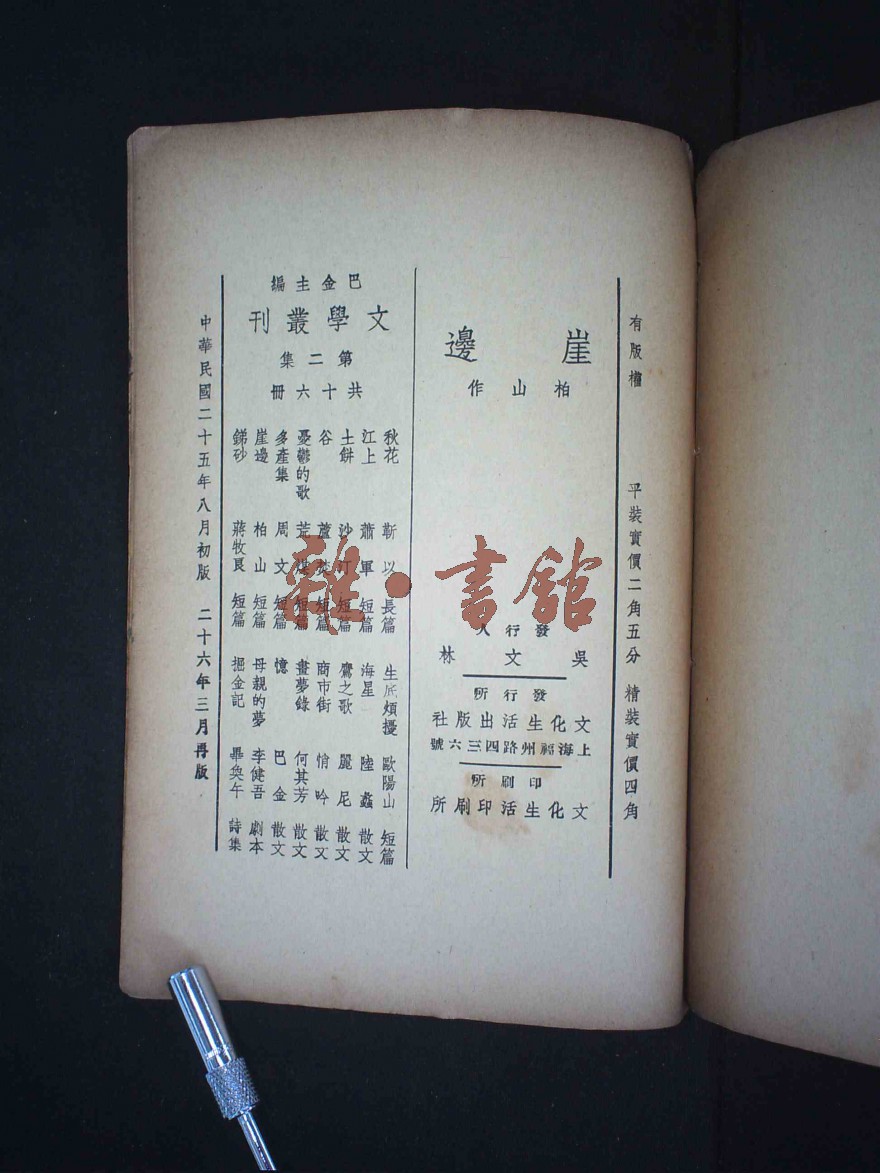 有版權
平裝實價二角五分 精裝實價四角
崖邊
柏山作
發行人
吳文林
發行所
文化生活出版社
上海福州路四三六號
印刷所
文化生活印刷所
巴金主編
文學叢刊
第二集
共十六冊
秋花 靳以 長篇
江上 蕭軍 短篇
土餅 沙汀 短篇
谷 蘆焚 短篇
憂鬱的歌 荒煤 短篇
多產集 周文 短篇
崖邊 柏山 短篇
銻砂 蔣牧良 短篇
生底煩擾 歐陽山 短篇
海星 陸蠡 散文
鷹之歌 麗尼 散文
商市街 悄吟 散文
畫夢錄 何其芳 散文
憶 巴金 散文
母親的夢 李健吾 劇本
掘金記 畢奐午 詩集
中華民國二十五年八月初版 二十六年三月再版
雜·書館